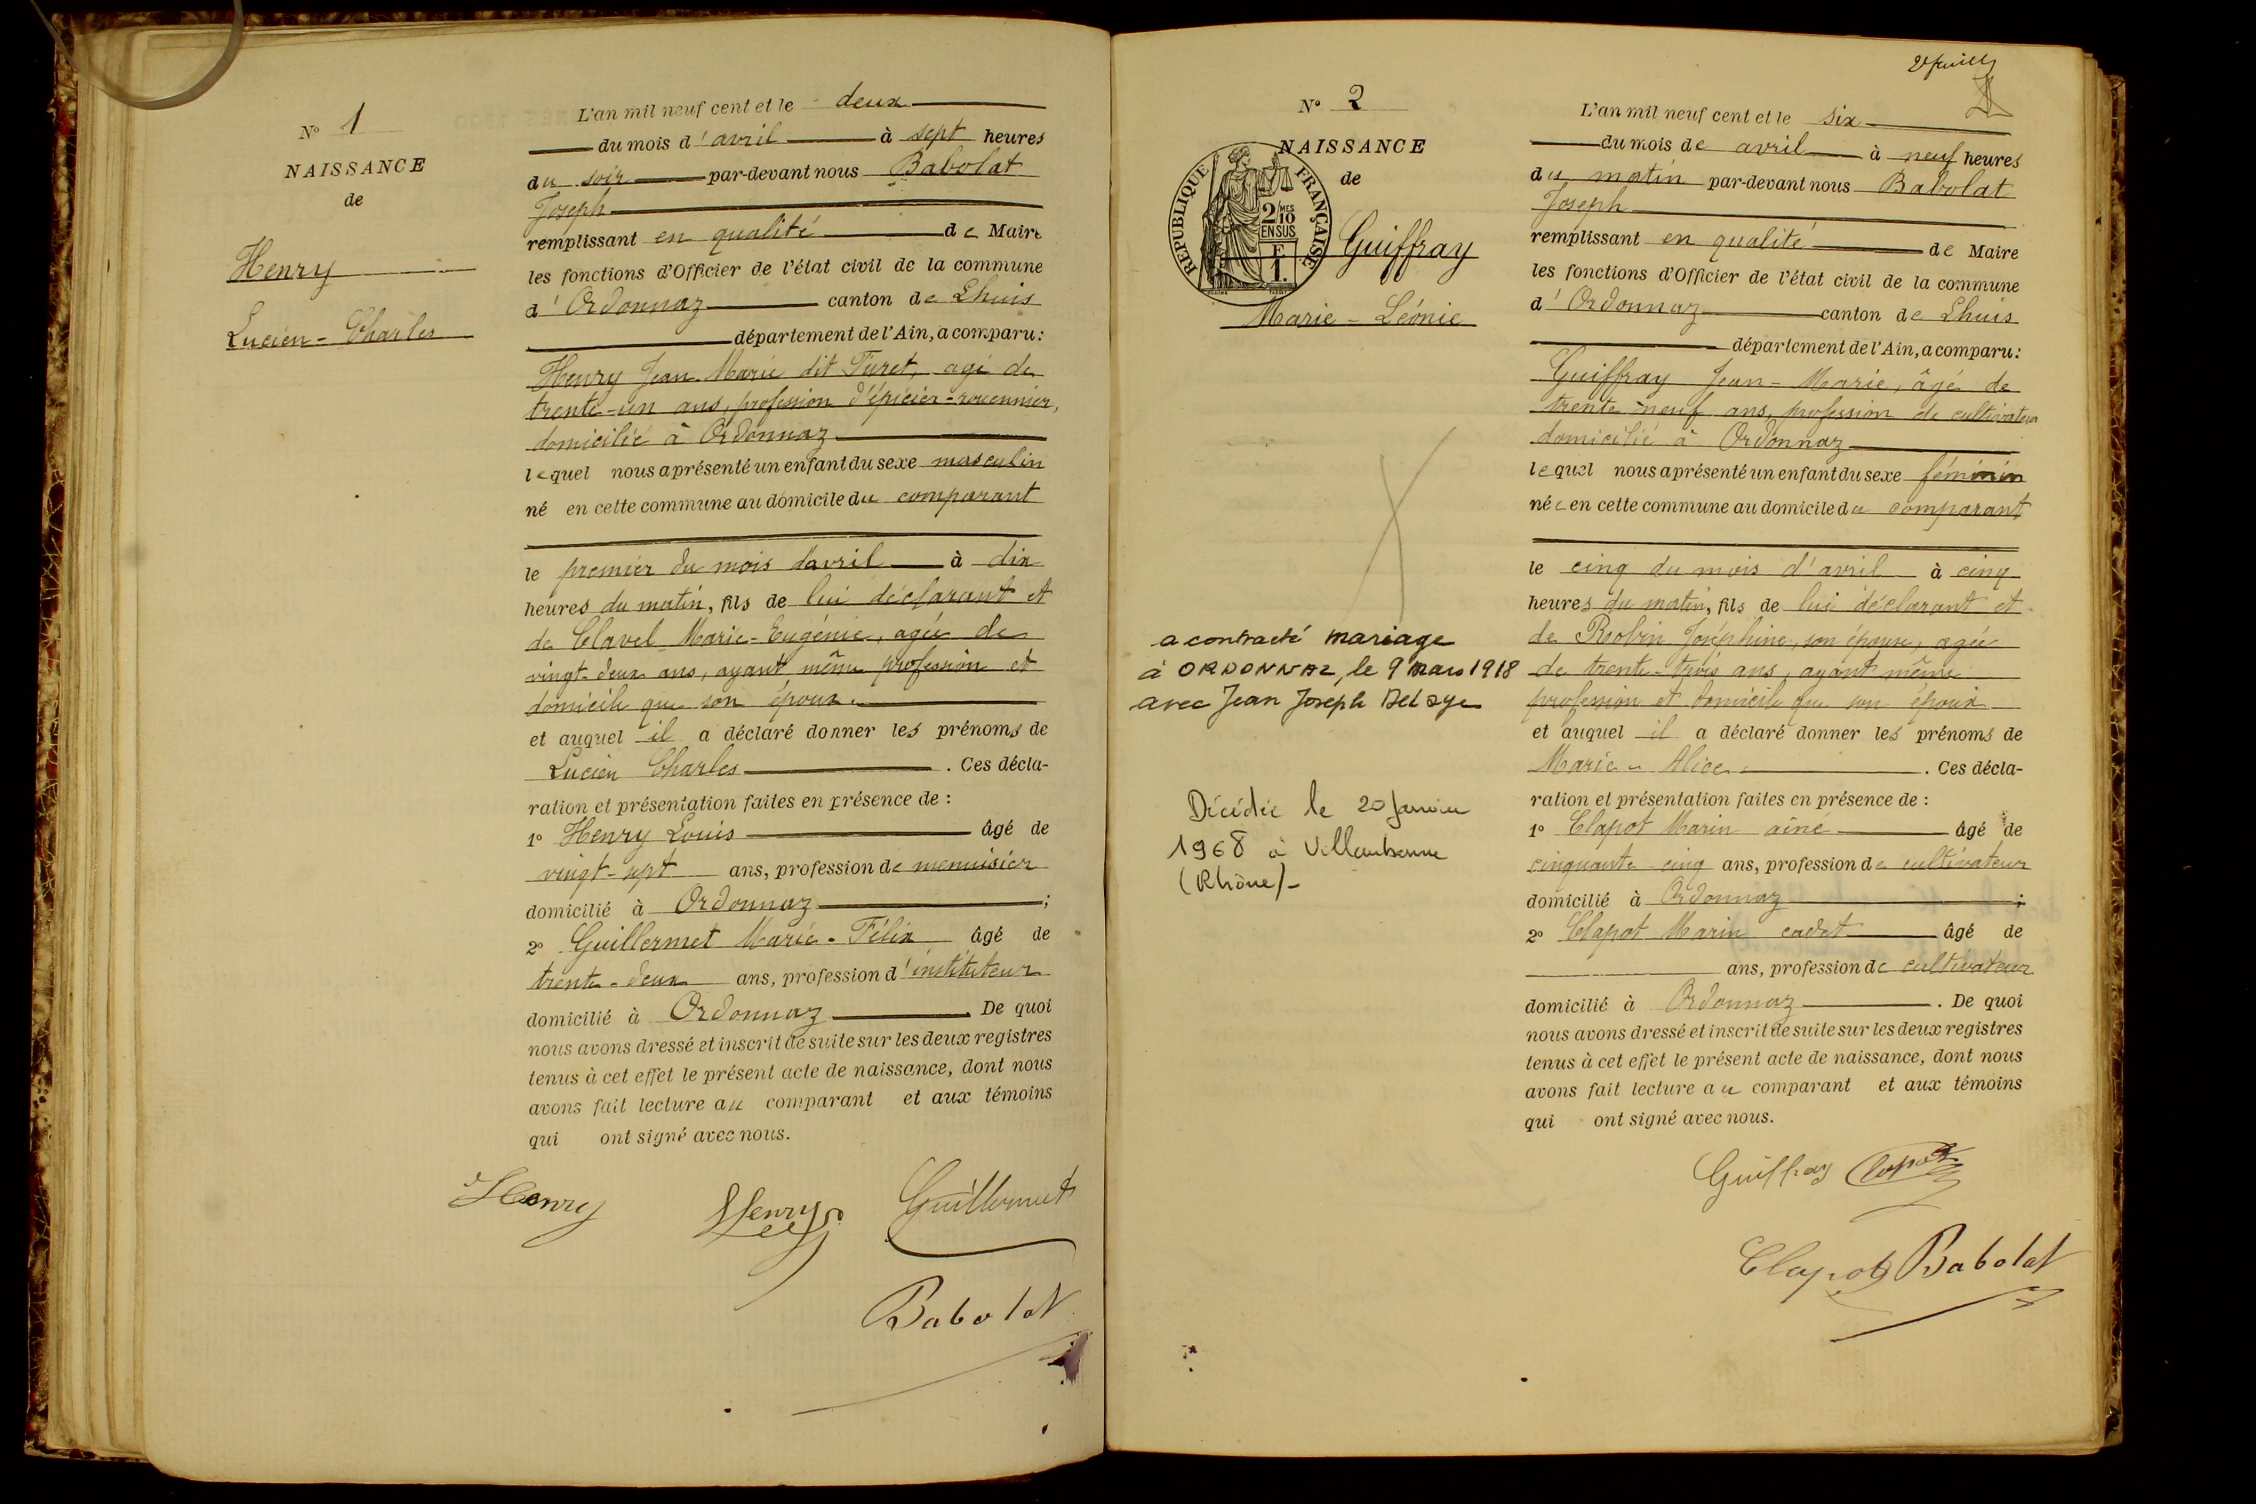 N° 1
NAISSANCE
de
Henry
Lucien-Charles
L'an mil neuf cent et le deux
du mois d'avril à sept heures
du soir par-devant nous Babolat
Joseph
remplissant en qualité de Maire
les fonctions d'Officier de l'état civil de la commune
d'Ordonnaz canton de Lhuis
département de l'Ain, a comparu:
Henry Jean-Marie dit Furet, agé de
trente-un ans, profession d'épicier-rouennier,
domicilié à Ordonnaz
lequel nous a présenté un enfant du sexe masculin
né en cette commune au domicile du comparant
le premier du mois d'avril à dix
heures du matin, fils de lui déclarant et
de Clavel Marie-Eugénie, agée de
vingt-deux ans, ayant même profession et
domicile que son époux.
et auquel il a déclaré donner les prénoms de
Lucien Charles. Ces décla-
ration et présentation faites en présence de :
1° Henry Louis âgé de
vingt-sept ans, profession de menuisier
domicilié à Ordonnaz ;
2° Guillermet Marie-Félix âgé de
trente-deux ans, profession d'instituteur
domicilié à Ordonnaz. De quoi
nous avons dressé et inscrit de suite sur les deux registres
tenus à cet effet le présent acte de naissance, dont nous
avons fait lecture au comparant et aux témoins
qui ont signé avec nous.
Henry Henry Guillermet
Babolat
2e feuille
N° 2
NAISSANCE
de
REPUBLIQUE FRANÇAISE
2/10 MES
EN SUS
F
1.
Guiffray
Marie-Léonie
a contracté mariage
à ORDONNAZ, le 9 mars 1918
avec Jean Joseph Delaye
Décédée le 20 Janvier
1968 à Villeurbanne
(Rhône)-
L'an mil neuf cent et le six
du mois de avril à neuf heures
du matin par-devant nous Babolat
Joseph
remplissant en qualité de Maire
les fonctions d'Officier de l'état civil de la commune
d'Ordonnaz canton de Lhuis
département de l'Ain, a comparu:
Guiffray Jean-Marie, âgé de
trente-neuf ans, profession de cultivateur
domicilié à Ordonnaz
lequel nous a présenté un enfant du sexe féminin
née en cette commune au domicile du comparant
le cinq du mois d'avril à cinq
heures du matin, fils de lui déclarant et
de Robin Joséphine, son épouse, agée
de trente-trois ans, ayant même
profession et domicile que son époux
et auquel il a déclaré donner les prénoms de
Marie-Alice. Ces décla-
ration et présentation faites en présence de :
1° Clapot Marin aîné âgé de
cinquante-cinq ans, profession de cultivateur
domicilié à Ordonnaz ;
2° Clapot Marin cadet âgé de
ans, profession de cultivateur
domicilié à Ordonnaz. De quoi
nous avons dressé et inscrit de suite sur les deux registres
tenus à cet effet le présent acte de naissance, dont nous
avons fait lecture au comparant et aux témoins
qui ont signé avec nous.
Guiffray Clapot
Clapot Babolat